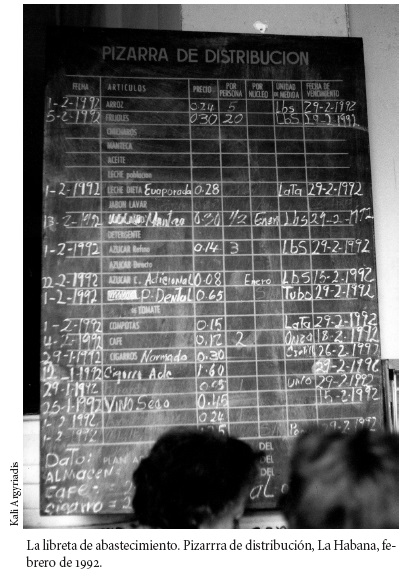 PIZARRA DE DISTRIBUCION
FECHA ARTICULOS PRECIO POR PERSONA POR NUCLEO UNIDAD DE MEDIDA FECHA DE VENCIMIENTO
1-2-1992 ARROZ 0.24 5 Lbs 29-2-1992
5-2-1992 FRIJOLES 030 20 Lbs 29-2-1992
CHICHAROS
MANTECA
ACEITE
LECHE
1-2-1992 LECHE DIETA Evaporada 0.28 LaTa 29-2-1992
JABON LAVAR
13-2-1992 1/2 Lbs
DETERGENTE
1-2-1992 AZUCAR Refino 0.14 3 LbS 29-2-1992
AZUCAR Directo
AZUCAR C. Adicional 0.08 Enero LbS 15-2-1992
1-2-1992 P. Dental 0.65 Tubo 29-2-1992
TOMATE
1-2-1992 COMPOTAS 0.15 LaTa 29-2-1992
4-2-1992 CAFE 0.12 2 Onza
29-1-1992 CIGARROS Normado 0.30 26-2-1992
1-1992 Cigarro Adc 1.60 29-2-1992
29-1-1992 29-2-1992
25-1-1992 VINO Seco 0.45 15-2-1992
1-2-1992 0.24
1-2-1992
Dato: PLAN DEL
ALMACEN: DEL
Cafe: DEL
cigarro = 2
Kali Argyriadis
La libreta de abastecimiento. Pizarrra de distribución, La Habana, fe-
brero de 1992.